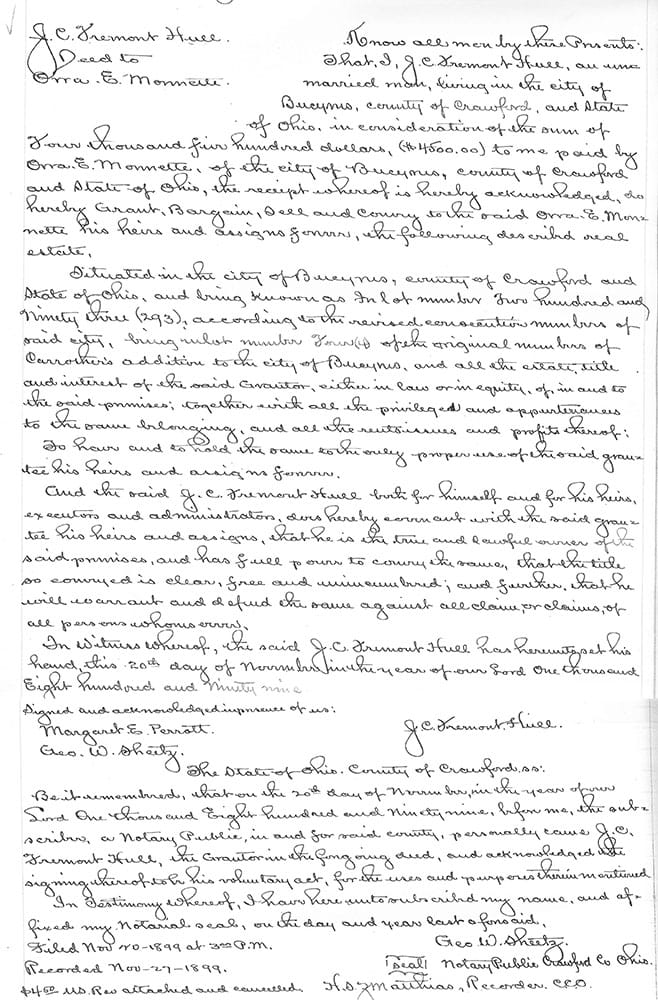 J. C. Fremont Hull.
Deed to
Orra. E. Monnette.
Know all men by these Presents:
That, I, J. C. Fremont Hull, an un=
married man, living in the city of
Bucyrus, county of Crawford, and State
of Ohio, in consideration of the sum of
Four thousand five hundred dollars, ($4500.00) to me paid by
Orra. E. Monnette, of the city of Bucyrus, county of Crawford
and State of Ohio, the receipt whereof is hereby acknowledged, do
hereby Grant, Bargain, Sell and Convey to the said Orra. E. Mon=
nette his heirs and assigns forever, the following described real
estate,
Situated in the city of Bucyrus, county of Crawford and
State of Ohio, and being known as In lot number Two hundred and
Ninety three (293), according to the revised consecutive numbers of
said city, being inlot number Four (4) of the original numbers of
Carrother's addition to the city of Bucyrus, and all the estate, title
and interest of the said Grantor, either in law or in equity, of, in and to
the said premises; together with all the privileges and appurtenances
to the same belonging, and all the rents issues and profits thereof:
To have and to hold the same to the only proper use of the said gran=
tee his heirs and assigns forever.
And the said J. C. Fremont Hull both for himself and for his heirs,
executors and administrators, does hereby covenant with the said gran=
tee his heirs and assigns, that he is the true and lawful owner of the
said premises, and has full power to convey the same, that the title
so conveyed is clear, free and unincumbred; and further, that he
will warrant and defend the same against all claim, or claims, of
all persons whomsoever.
In Witness whereof, the said J. C. Fremont Hull has hereunto set his
hand, this 20th day of November in the year of our Lord One thousand
Eight hundred and Ninety nine
Signed and acknowledged in presence of us:
Margaret E. Perrott.
J. C. Fremont. Hull.
Geo. W. Sheetz.
The State of Ohio. County of Crawford. ss:
Be it remembered, that on the 20th day of November, in the year of our
Lord One thousand Eight hundred and Ninety nine, before me, the sub=
scriber, a Notary Public, in and for said county, personally came J. C.
Fremont Hull, the Grantor in the foregoing deed, and acknowledged the
signing thereof to be his voluntary act, for the uses and purposes therein mentioned
In Testimony whereof, I have here unto subscribed my name, and af=
fixed my Notarial seal, on the day and year last aforesaid,
Filed Nov 20-1899 at 3oo P.M.
Geo W. Sheetz.
Recorded Nov-27-1899.
Seal
Notary Public Crawford Co Ohio.
$4.50 U.S. Rev attached and cancelled.
Matthias, Recorder, C.C.O.